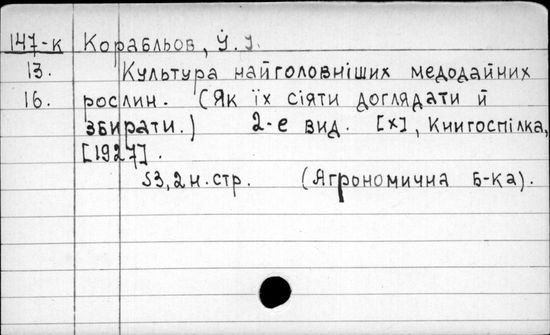 147-к Корабльов, І. І.
13. Культура найголовніших медодайних
16. рослин. (Як їх сіяти доглядати й
збирати.) 2-е вид. [х], Книгоспілка,
[1927].
53, 2 н. стр. (Агрономична б-ка).